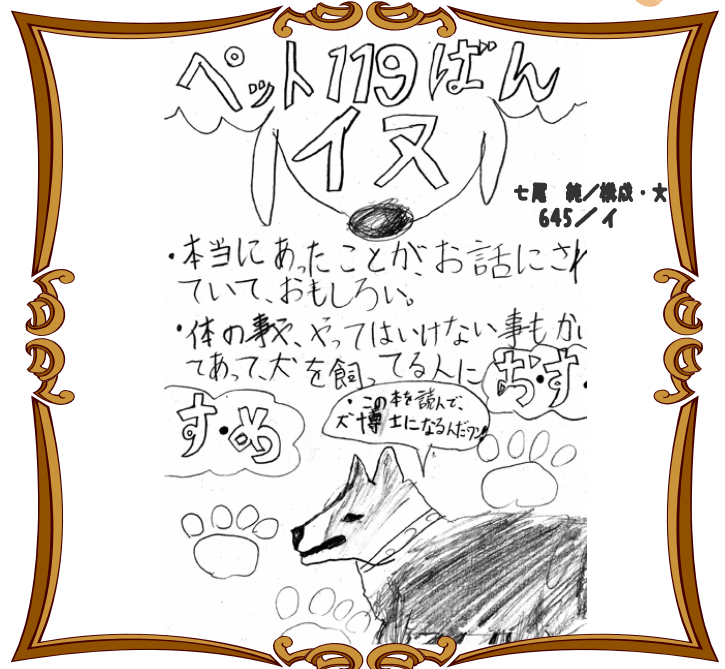 ペット119ばん
イヌ
七尾 純／構成・文
645／イ
・本当にあったことが、お話にさ
ていて、おもしろい。
・体の事や、やってはいけない事もか
てあって、犬を飼ってる人に お・す・
す・め
・この本を読んで、
犬博士になるんだワン!